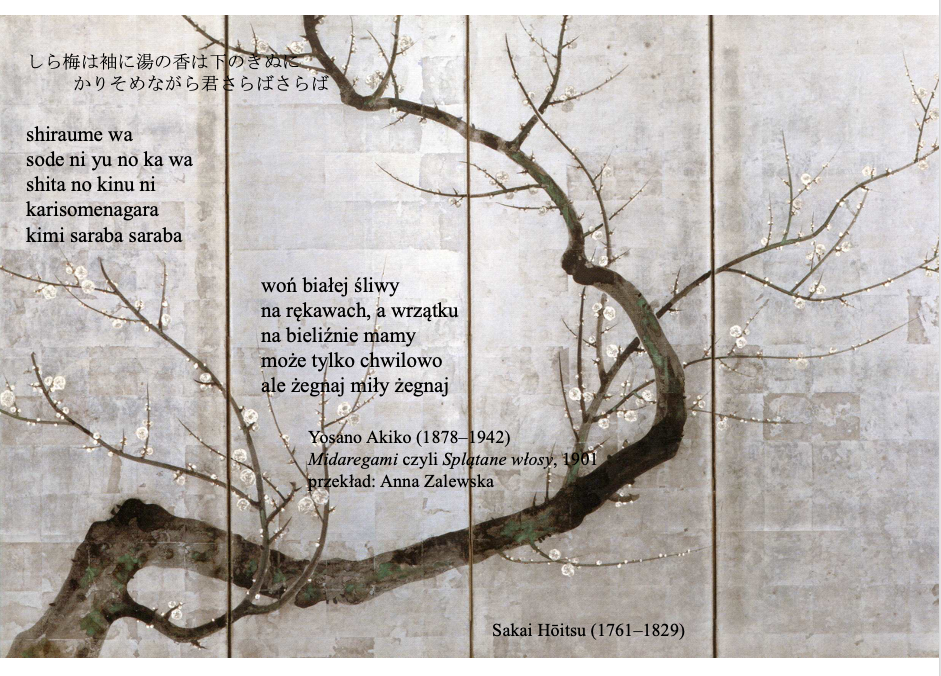 しら梅は袖に湯の香は下のきぬに
かりそめながら君さらばさらば
shiraume wa
sode ni yu no ka wa
shita no kinu ni
karisomenagara
kimi saraba saraba
woń białej śliwy
na rękawach, a wrzątku
na bieliźnie mamy
może tylko chwilowo
ale żegnaj miły żegnaj
Yosano Akiko (1878–1942)
Midaregami czyli Splątane włosy, 1901
przekład: Anna Zalewska
Sakai Hōitsu (1761–1829)